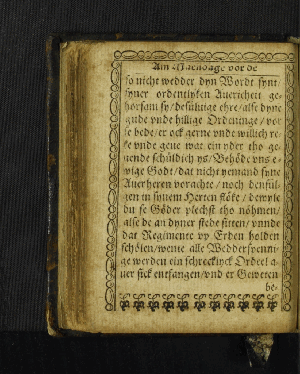 Am Mandage vor de
so nicht wedder dyn Wordt synt/
syner ordentlyken Auericheit ge-
horsam sy/ desüluige ehre/ alse dyne
gude vnde hillige Ordeninge/ vor
se bede/ er ock gerne vnde willich re-
ke vnde geue wat ein yder tho ge-
uende schüldich ys/ Behöde vns e-
wige Godt/ dat nicht yemand syne
Auerheren vorachte/ noch densül-
gen in synem Herten flöke/ dewyle
du se Göder plechst tho nöhmen/
alse de an dyner stede sitten/ vnnde
dat Regimente vp Erden holden
schölen/ wente alle Wedderspenni-
ge werden ein schrecklyck Ordeel a-
uer sick entfangen/ vnd er Geweten
be-